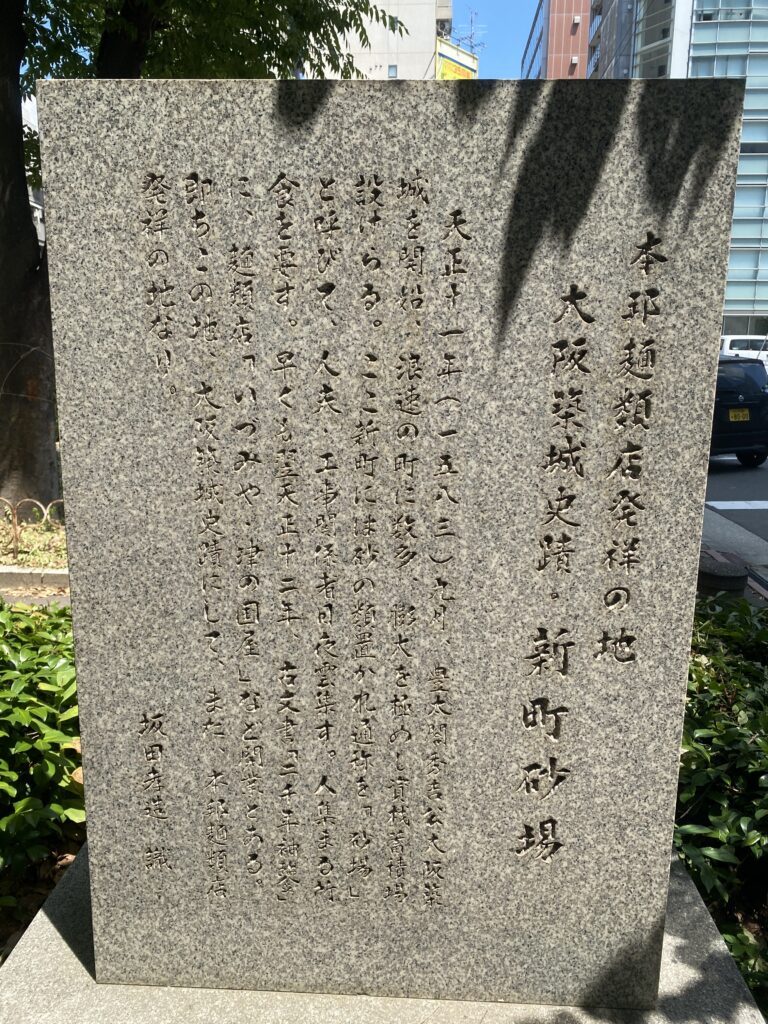 本邦麺類店発祥の地
大阪築城史蹟。新町砂場
天正十一年(一五八三)九月、豊太閤秀吉公大阪築
城を開始、浪速の町に数多、膨大を極めし資材蓄積場
設けらる。ここ新町には砂の類置かれ通称を「砂場」
と呼びて、人夫、工事関係者日夜雲集す。人集まる所
食を要す。早くも翌天正十二年、古文書「二千年袖鑒」
に、麺類店「いづみや・津の国屋」など開業とある。
即ちこの地、大阪築城史蹟にして、また、本邦麺類店
発祥の地なり。
坂田孝造 識